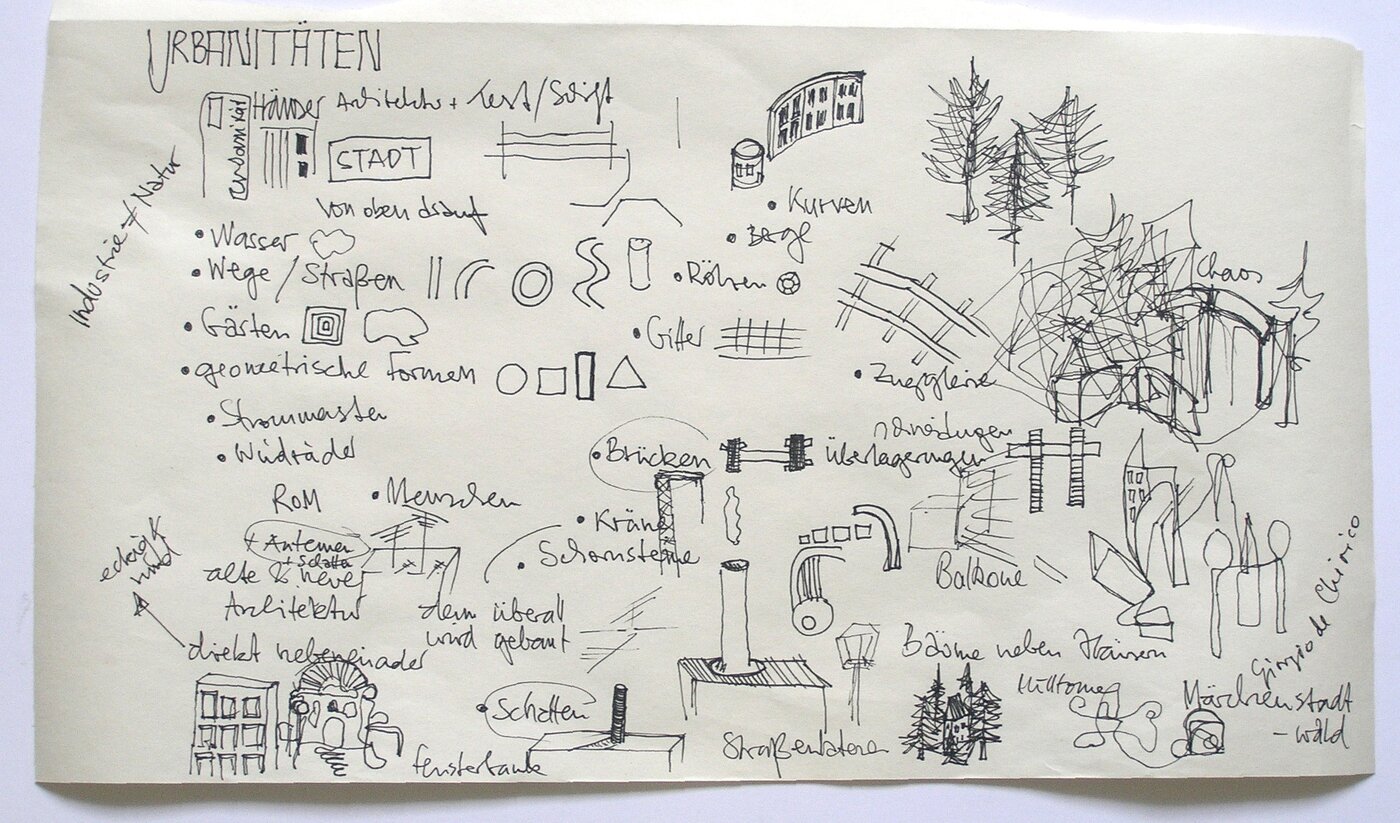 URBANITÄTEN
Häuser Architektur + Text/Schrift
Urbanität
STADT
von oben drauf
Industrie ≠ Natur
• Wasser
• Wege / Straßen
• Gärten
• geometrische Formen
• Strommasten
• Windräder
• Kurven
• Berge
• Röhren
• Gitter
• Zuggleise
Chaos
• Brücken
überlagerungen
ROM
• Menschen
+ Antennen
+ Schatten
alte & neue
Architektur
direkt nebeneinader
eckig &
rund
• Kräne
• Schornsteine
denn überall
wird gebaut
Balkone
Bäume neben Häusern
Giorgio de Chirico
• Schatten
Fensterbank
Straßenlaterne
Mülltonne
Märchenstadt
-wald